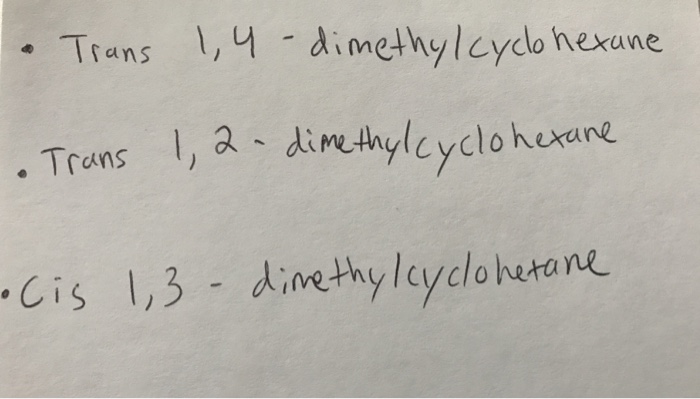 • Trans 1,4 - dimethylcyclohexane
• Trans 1,2 - dimethylcyclohexane
• Cis 1,3 - dimethylcyclohexane